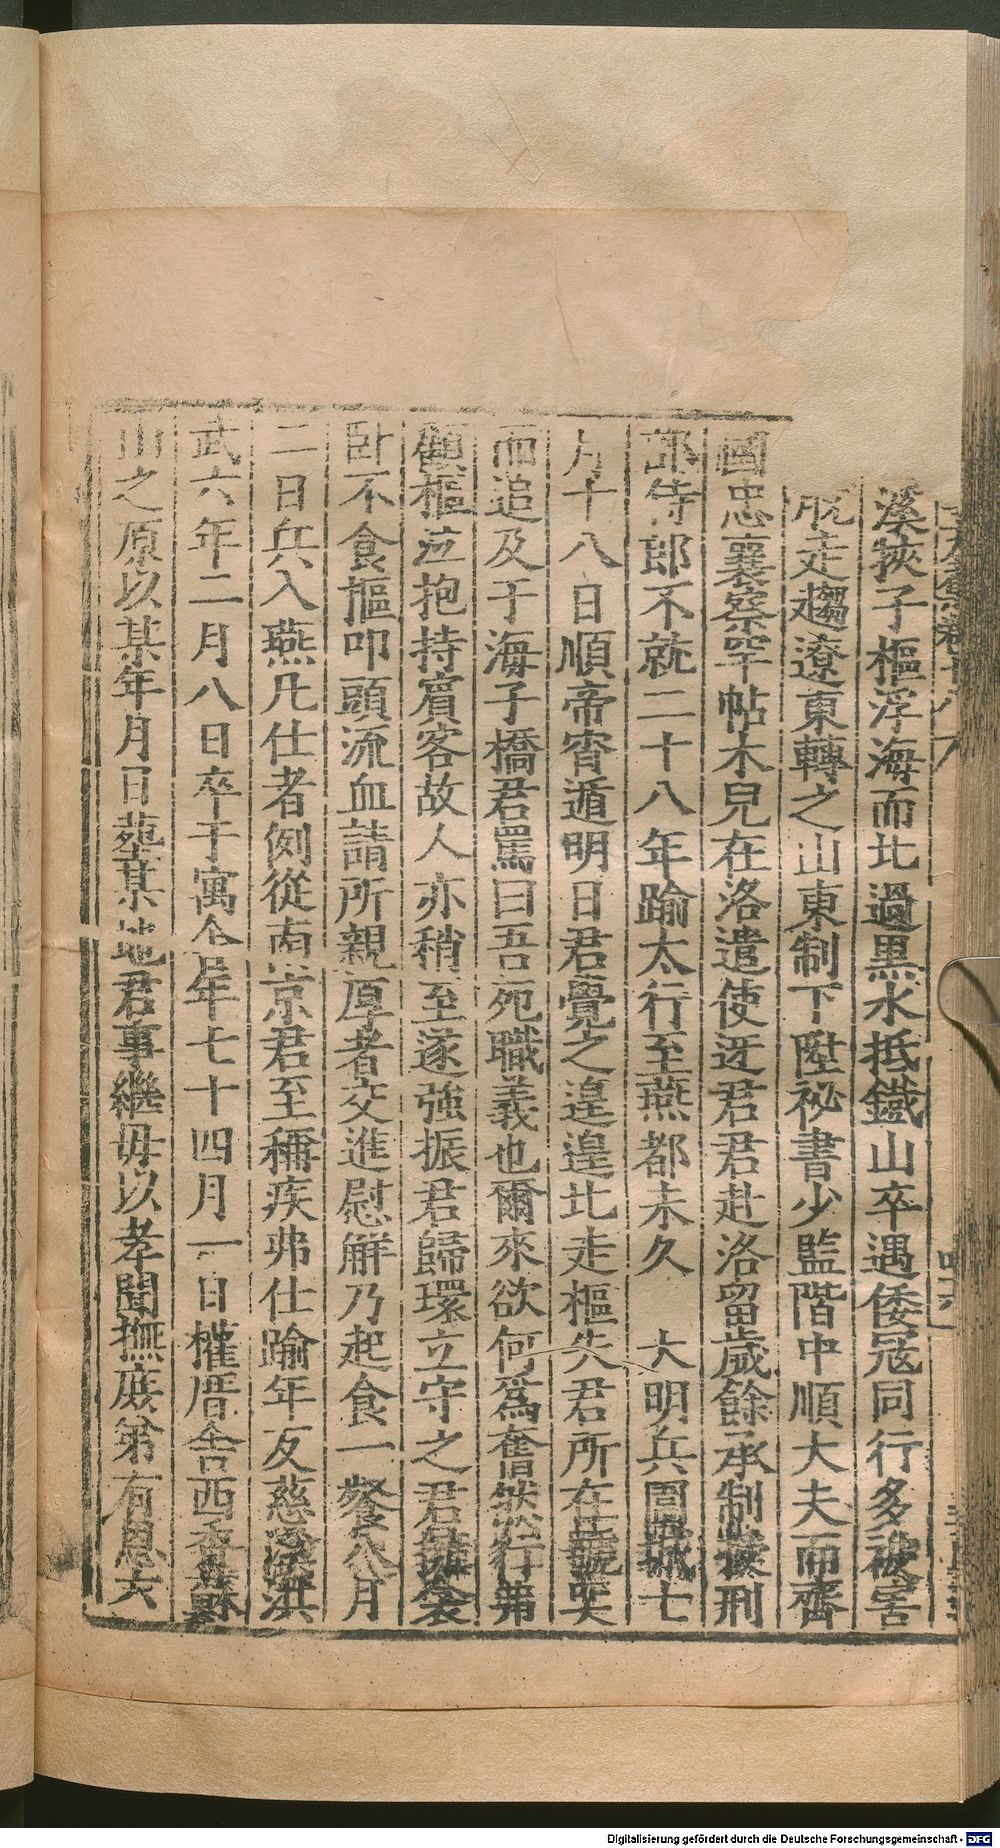 溪挾子樞浮海而北過黒水抵鐵山卒遇倭冦同行多被害
脫走趨遼東轉之山東制下陞祕書少監階中順大夫而齊
國忠襄察罕帖木兒在洛遣使迓君君赴洛留歲餘承制擬刑
部侍郎不就二十八年踰太行至燕都未久 大明兵圍城七
月十八日順帝宵遁明日君覺之遑遑北走樞失君所在號哭
而追及于海子橋君罵曰吾死職義也爾來欲何爲奮然行弗
顧樞泣抱持賔客故人亦稍至遂強振君歸環立守之君
卧不食摳叩頭流血請所親厚者交進慰解乃起食一餐八月
二日兵入燕凡仕者例從南京君至稱疾弗仕踰年反慈溪洪
武六年二月八日卒于寓舍年七十四月一日權厝舍西
山之原以某年月日葬某地君事繼母以孝聞撫庶弟有恩六
Digitalisierung gefördert durch die Deutsche Forschungsgemeinschaft - DFG